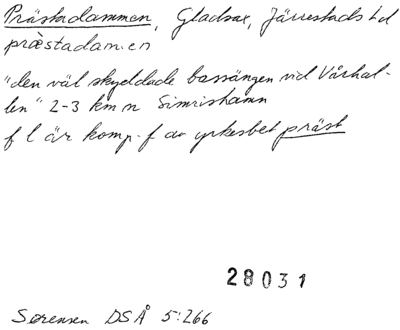 Prästadammen, Gladsax, Järrestads hd
præstadam:en
"den väl skyddade bassängen vid Vårhal-
len" 2-3 km n Simrishamn
f l är komp-f av yrkesbet präst
28031
Sørensen DSÅ 5:266